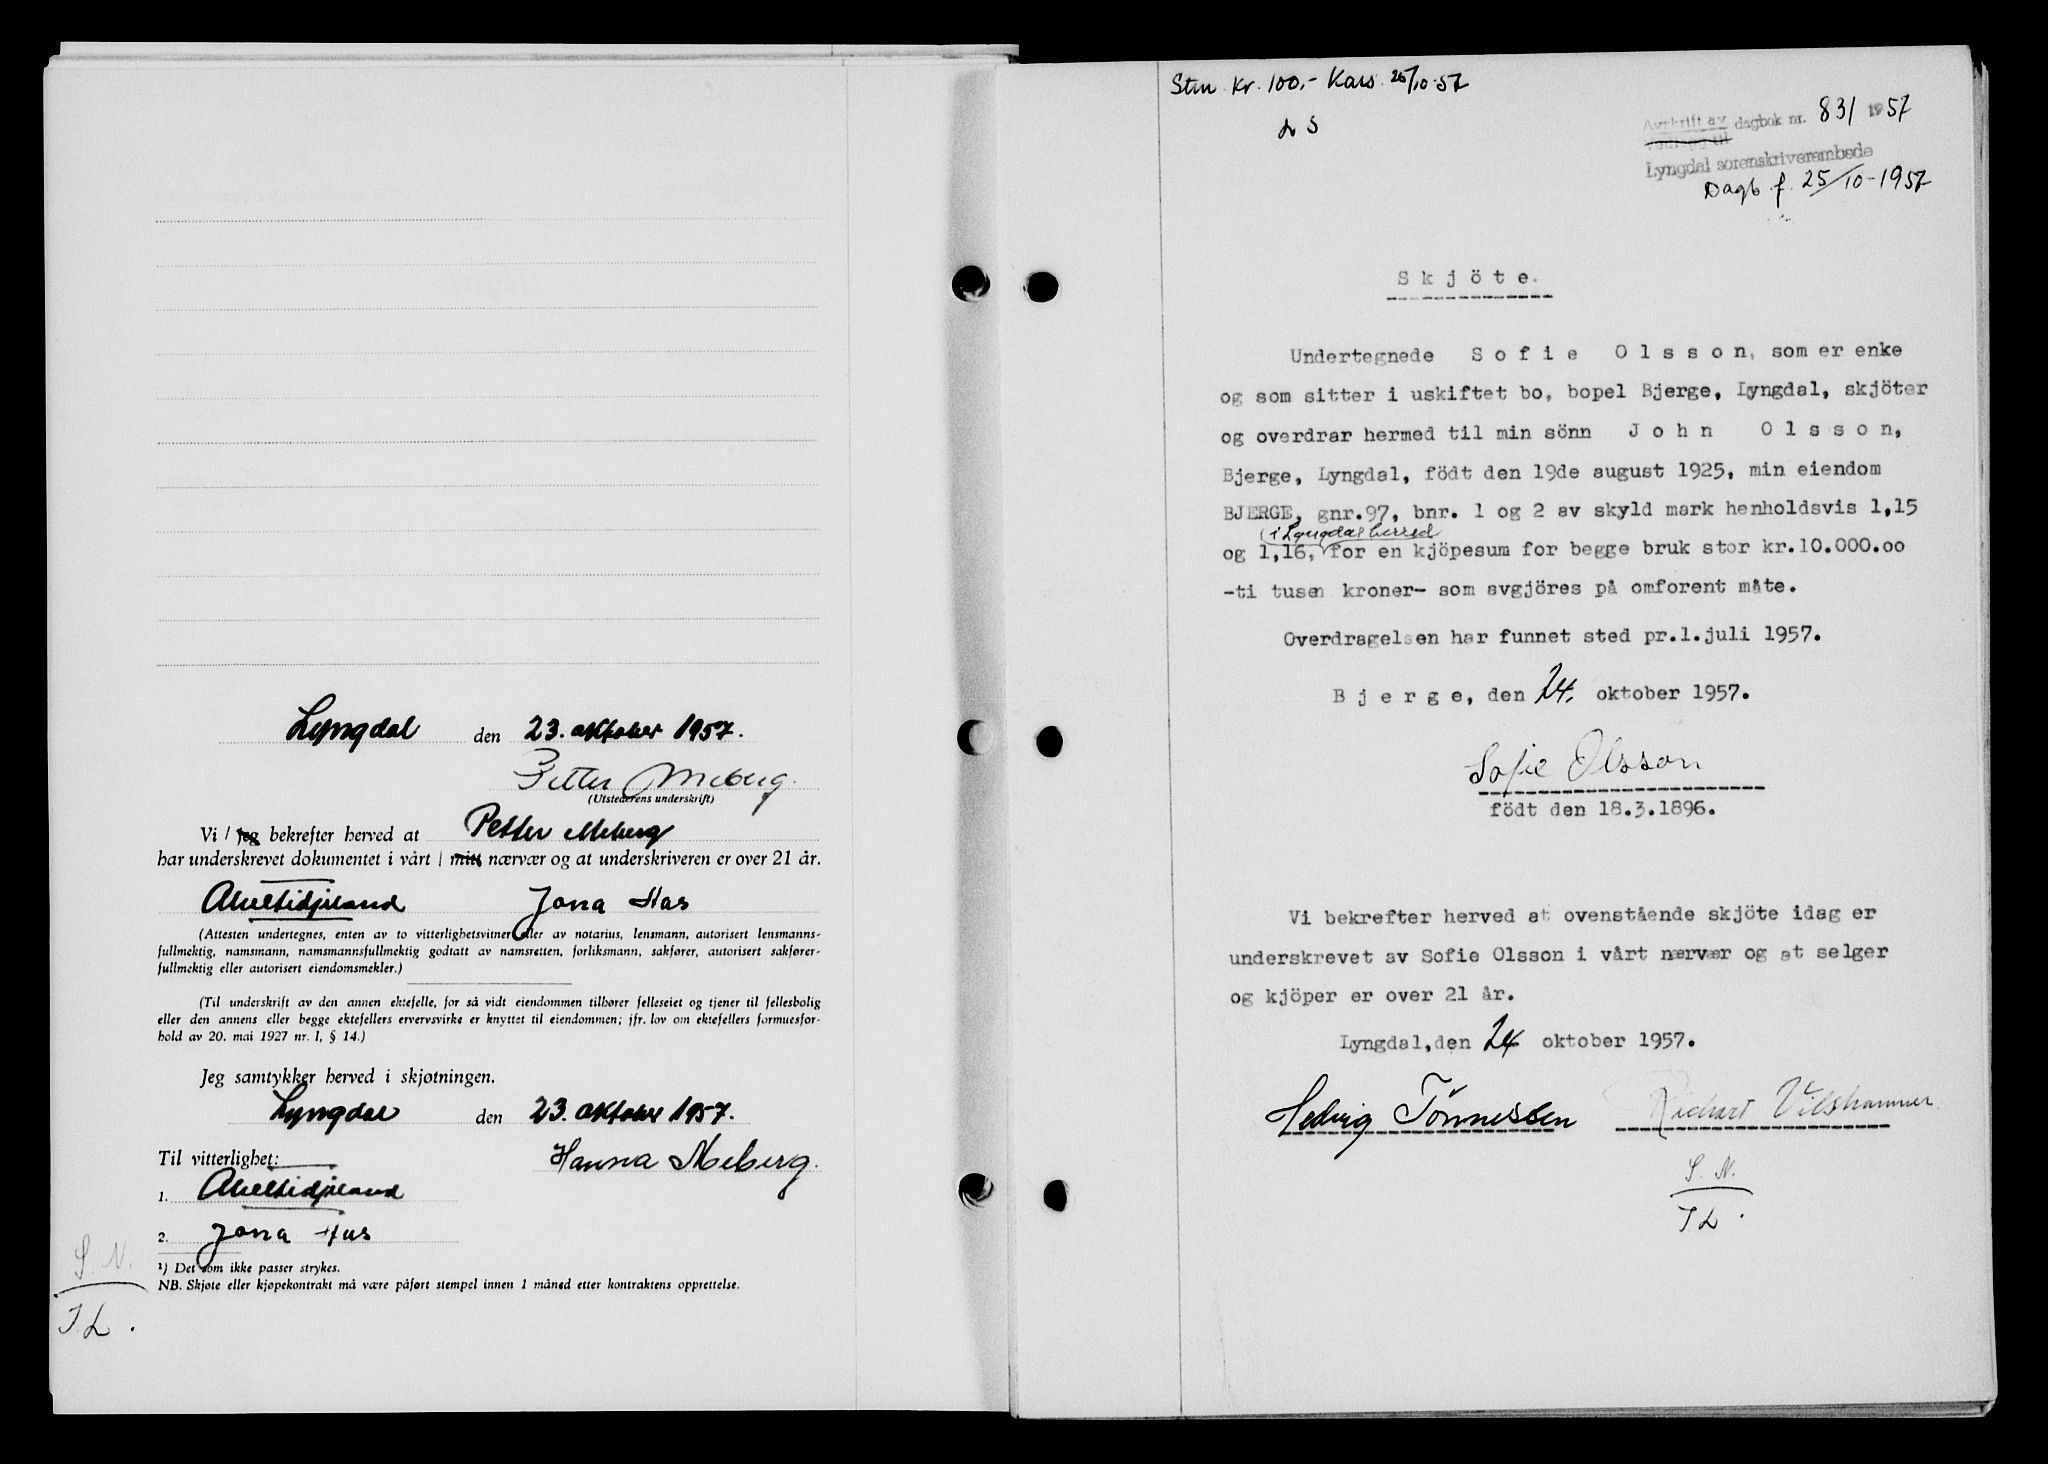 Lyngdal den 23. oktober 1957.
Petter Meberg.
(Utstederens underskrift)
Vi / jeg bekrefter herved at Petter Meberg
har underskrevet dokumentet i vårt / mitt nærvær og at underskriveren er over 21 år.
Jona Aas
(Attesten undertegnes, enten av to vitterlighetsvitner eller av notarius, lensmann, autorisert lensmanns-
fullmektig, namsmann, namsmannsfullmektig godtatt av namsretten, forliksmann, sakfører, autorisert sakfører-
fullmektig eller autorisert eiendomsmekler.)
(Til underskrift av den annen ektefelle, for så vidt eiendommen tilhører felleseiet og tjener til fellesbolig
eller den annens eller begge ektefellers ervervsvirke er knyttet til eiendommen; jfr. lov om ektefellers formuesfor-
hold av 20. mai 1927 nr. 1, § 14.)
Jeg samtykker herved i skjøtningen.
Lyngdal den 23. oktober 1957.
Til vitterlighet: Hanna Meberg.
1.
2. Jona Aas
¹) Det som ikke passer strykes.
NB. Skjøte eller kjøpekontrakt må være påført stempel innen 1 måned etter kontraktens opprettelse.
S. N.
T L.
Stm Kr. 100,- Kars. 25/10-57
L S
Avskrift av dagbok nr. 831 1957
Vedlegg til
Lyngdal sorenskriverembede
Dagb. f. 25/10-1957
Skjöte.
Undertegnede Sofie Olsson, som er enke
og som sitter i uskiftet bo, bopel Bjerge, Lyngdal, skjöter
og overdrar hermed til min sönn John Olsson,
Bjerge, Lyngdal, födt den 19de august 1925, min eiendom
BJERGE, gnr.97, bnr. 1 og 2 av skyld mark henholdsvis 1,15
i Lyngdal herred
og 1,16, for en kjöpesum for begge bruk stor kr.10.000.oo
-ti tusen kroner- som avgjöres på omforent måte.
Overdragelsen har funnet sted pr.1.juli 1957.
Bjerge, den 24. oktober 1957.
Sofie Olsson
födt den 18.3.1896.
Vi bekrefter herved at ovenstående skjöte idag er
underskrevet av Sofie Olsson i vårt nærvær og at selger
og kjöper er over 21 år.
Lyngdal,den 24 oktober 1957.
Hedvig Tönnessen Richart Vilshammer
S. N.
T L.